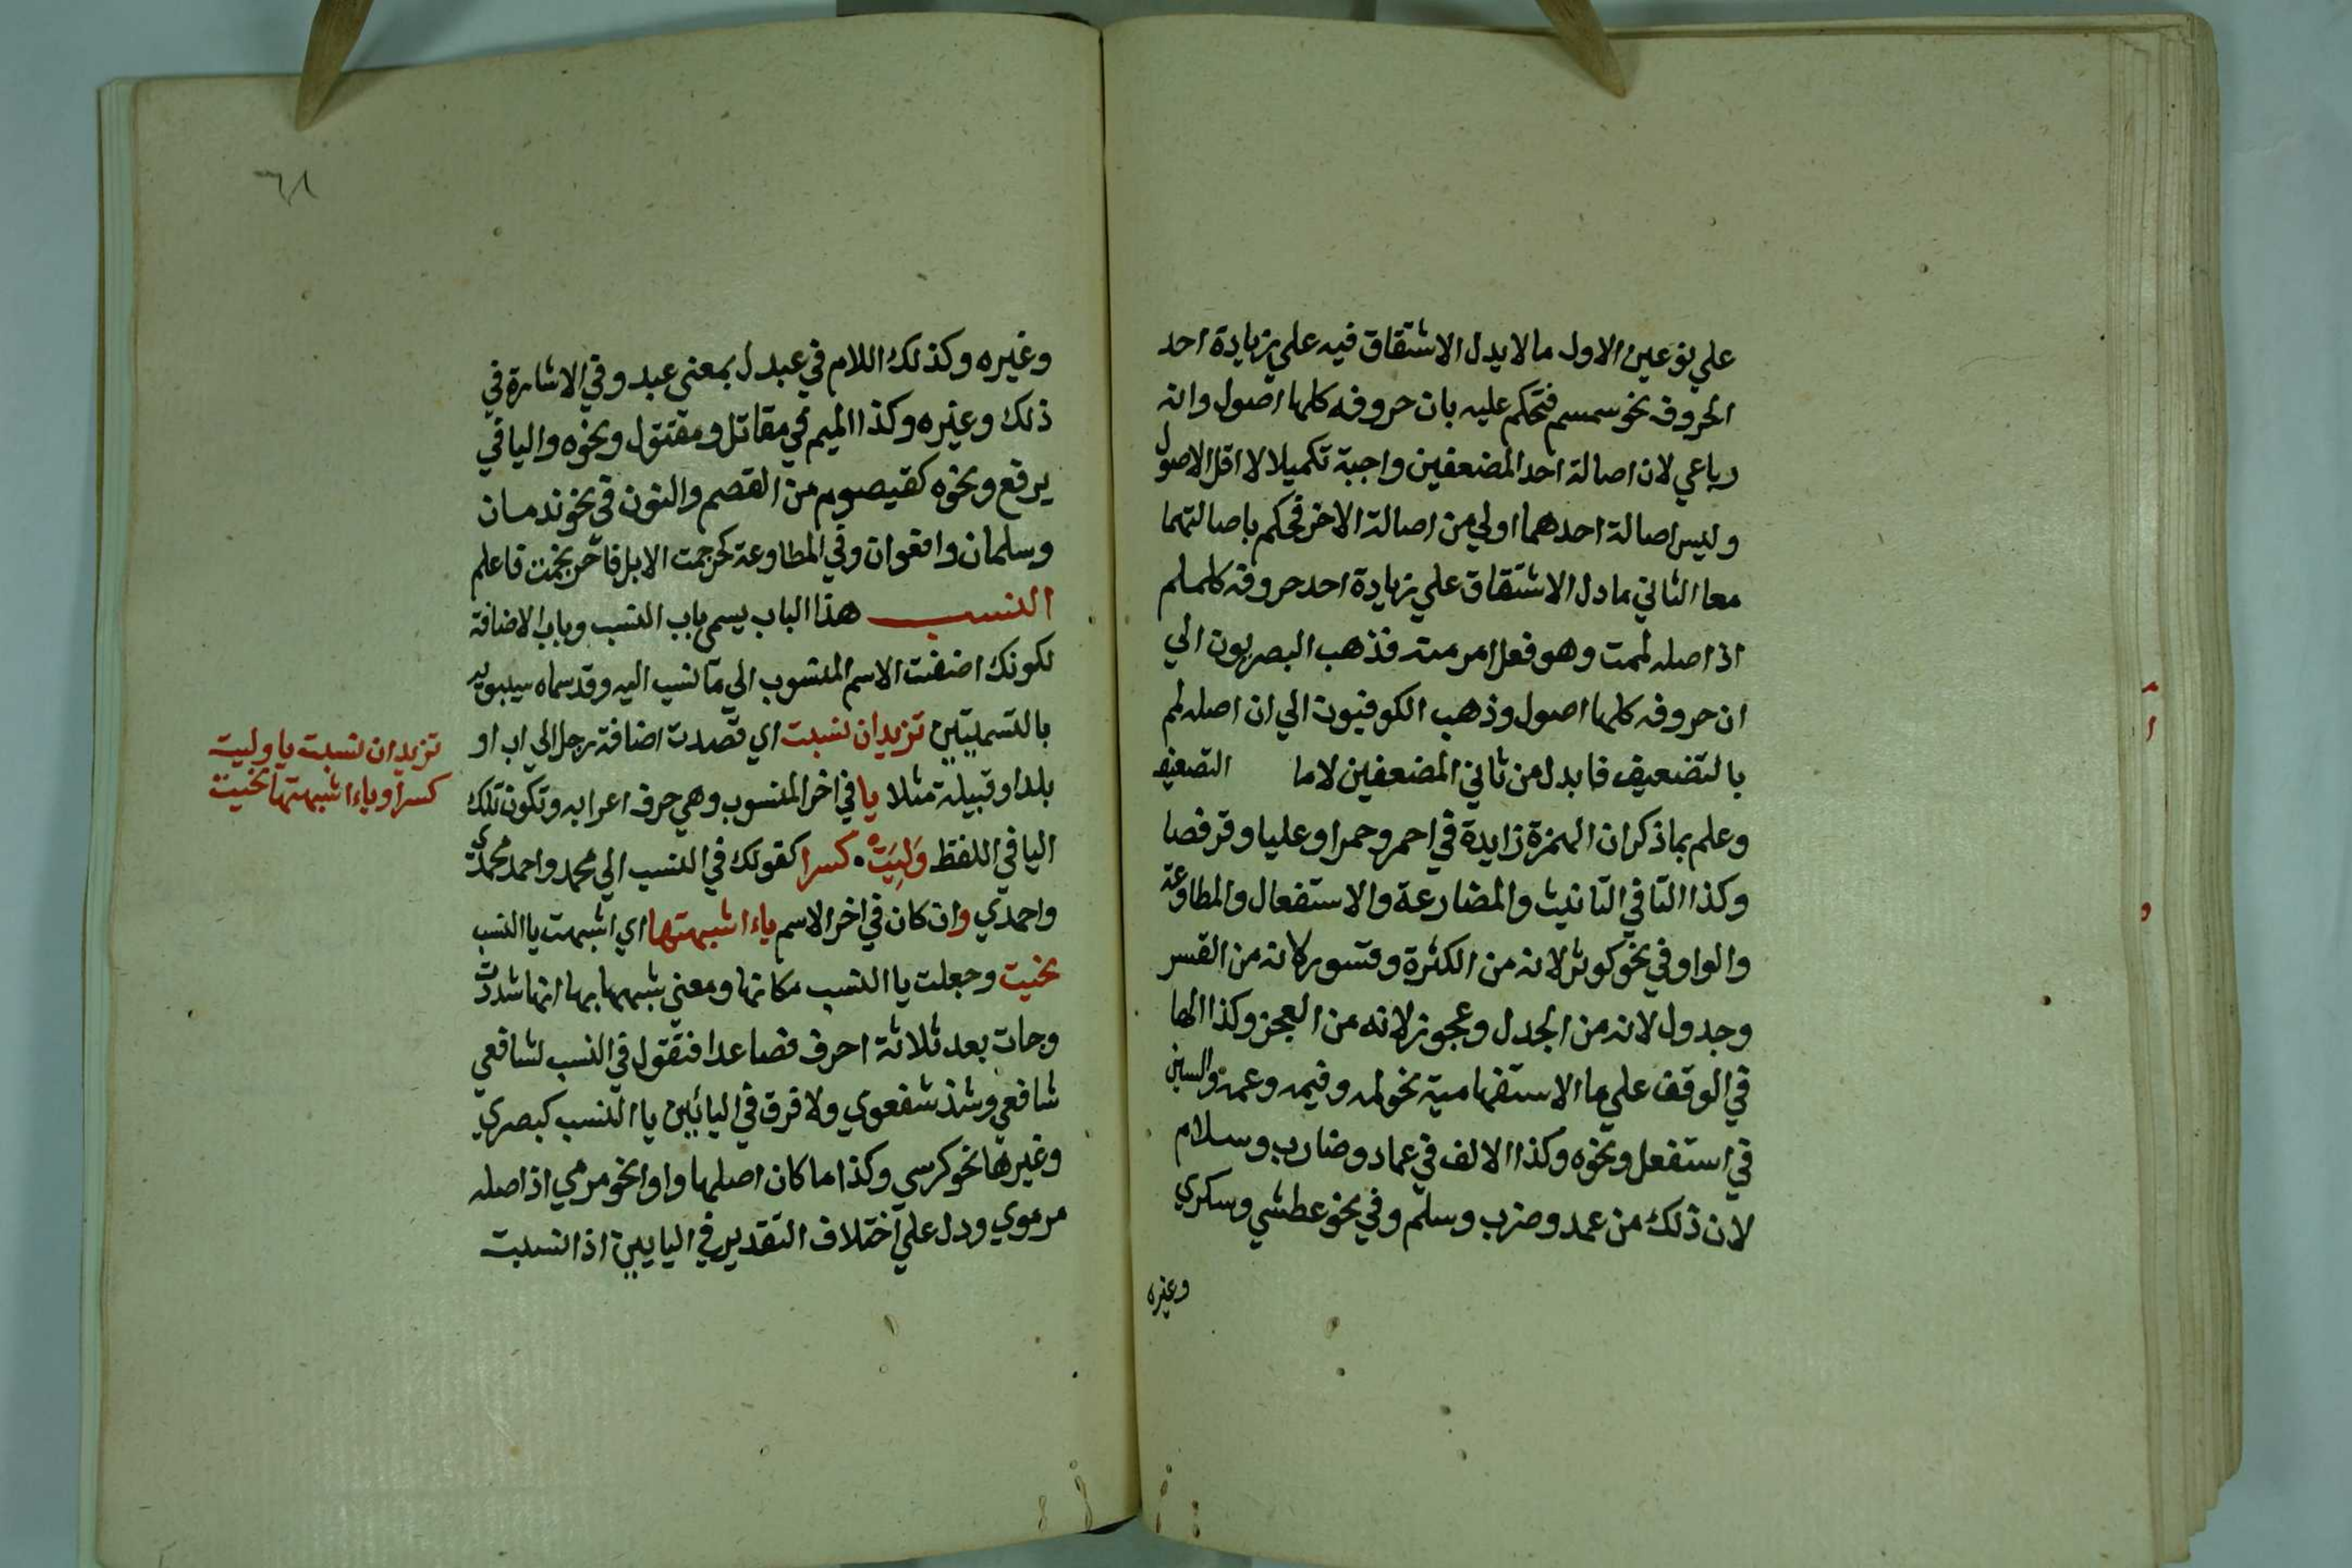 علي نوعين الاول ما لا يدل الاشتقاق فيه علي زيادة احد
الحروف نحو سمسم فتحكم عليه بان حروفه كلها اصول وانه
رباعي لان اصالة احد المضعفين واجبة تكميلا لاقل الاصول
وليس اصالة احدهما اولي من اصالة الاخر فحكم باصالتهما
معا الثاني ما دل الاشتقاق علي زيادة احد حروفه كلملم
اذ اصله لممت وهو فعل امر منه فذهب البصريون الي
ان حروفه كلها اصول وذهب الكوفيون الي ان اصله لمم
بالتضعيف فابدل من ثاني المضعفين لاما التضعيف
وعلم بما ذكر ان الهمزة زايدة في احمر وحمرا وعليا وقرفصا
وكذا التا في التانيث والمضارعة والاستفعال والمطاوعة
والواو في نحو كوثر لانه من الكثرة وقسور لانه من القسر
وجدول لانه من الجدل وعجوز لانه من العجز وكذا الها
في الوقف علي ما الاستفهامية نحو لمه وفيمه وعمه والسين
في استفعل ونحوه وكذا الالف في عماد وضارب وسلام
لان ذلك من عمد وضرب وسلم وفي نحو عطشي وسكري
وغيره
٦٨
وغيره وكذلك اللام في عبدل بمعني عبد وفي الاشارة في
ذلك وغيره وكذا الميم في مقاتل ومقتول ونحوه واليا في
يرفع ونحوه كقيصوم من القصم والنون في نحو ندمان
وسلمان وافعوان وفي المطاوعة كحرجمت الابل فاحرنجمت فاعلم
النسب هذا الباب يسمي باب النسب وباب الاضافة
لكونك اضفت الاسم المنسوب الي ما نسب اليه وقد سماه سيبويه
بالتسميتين تزيد ان نسبت اي قصدت اضافة رجل الي اب او
بلد او قبيلة مثلا يا في اخر المنسوب وهي حرف اعرابه وتكون تلك
اليا في اللفظ وَلِيَتْ كسرا كقولك في النسب الي محمد واحمد محمدي
واحمدي وان كان في اخر الاسم ياء اشبهتها اي اشبهت يا النسب
نحيت وجعلت يا النسب مكانها ومعني شبهها بها انها شددت
وجات بعد ثلاثة احرف فصاعدا فتقول في النسب لشافعي
شافعي وشذ شفعوي ولا فرق في اليائين يا النسب كبصري
وغيرها نحو كرسي وكذا ما كان اصلها واوا نحو مرمي اذ اصله
مرموي ودل علي اختلاف التقدير في اليايين اذا نسبت
تزيد ان نسبت يا وليت
كسرا وياء اشبهتها نحيت